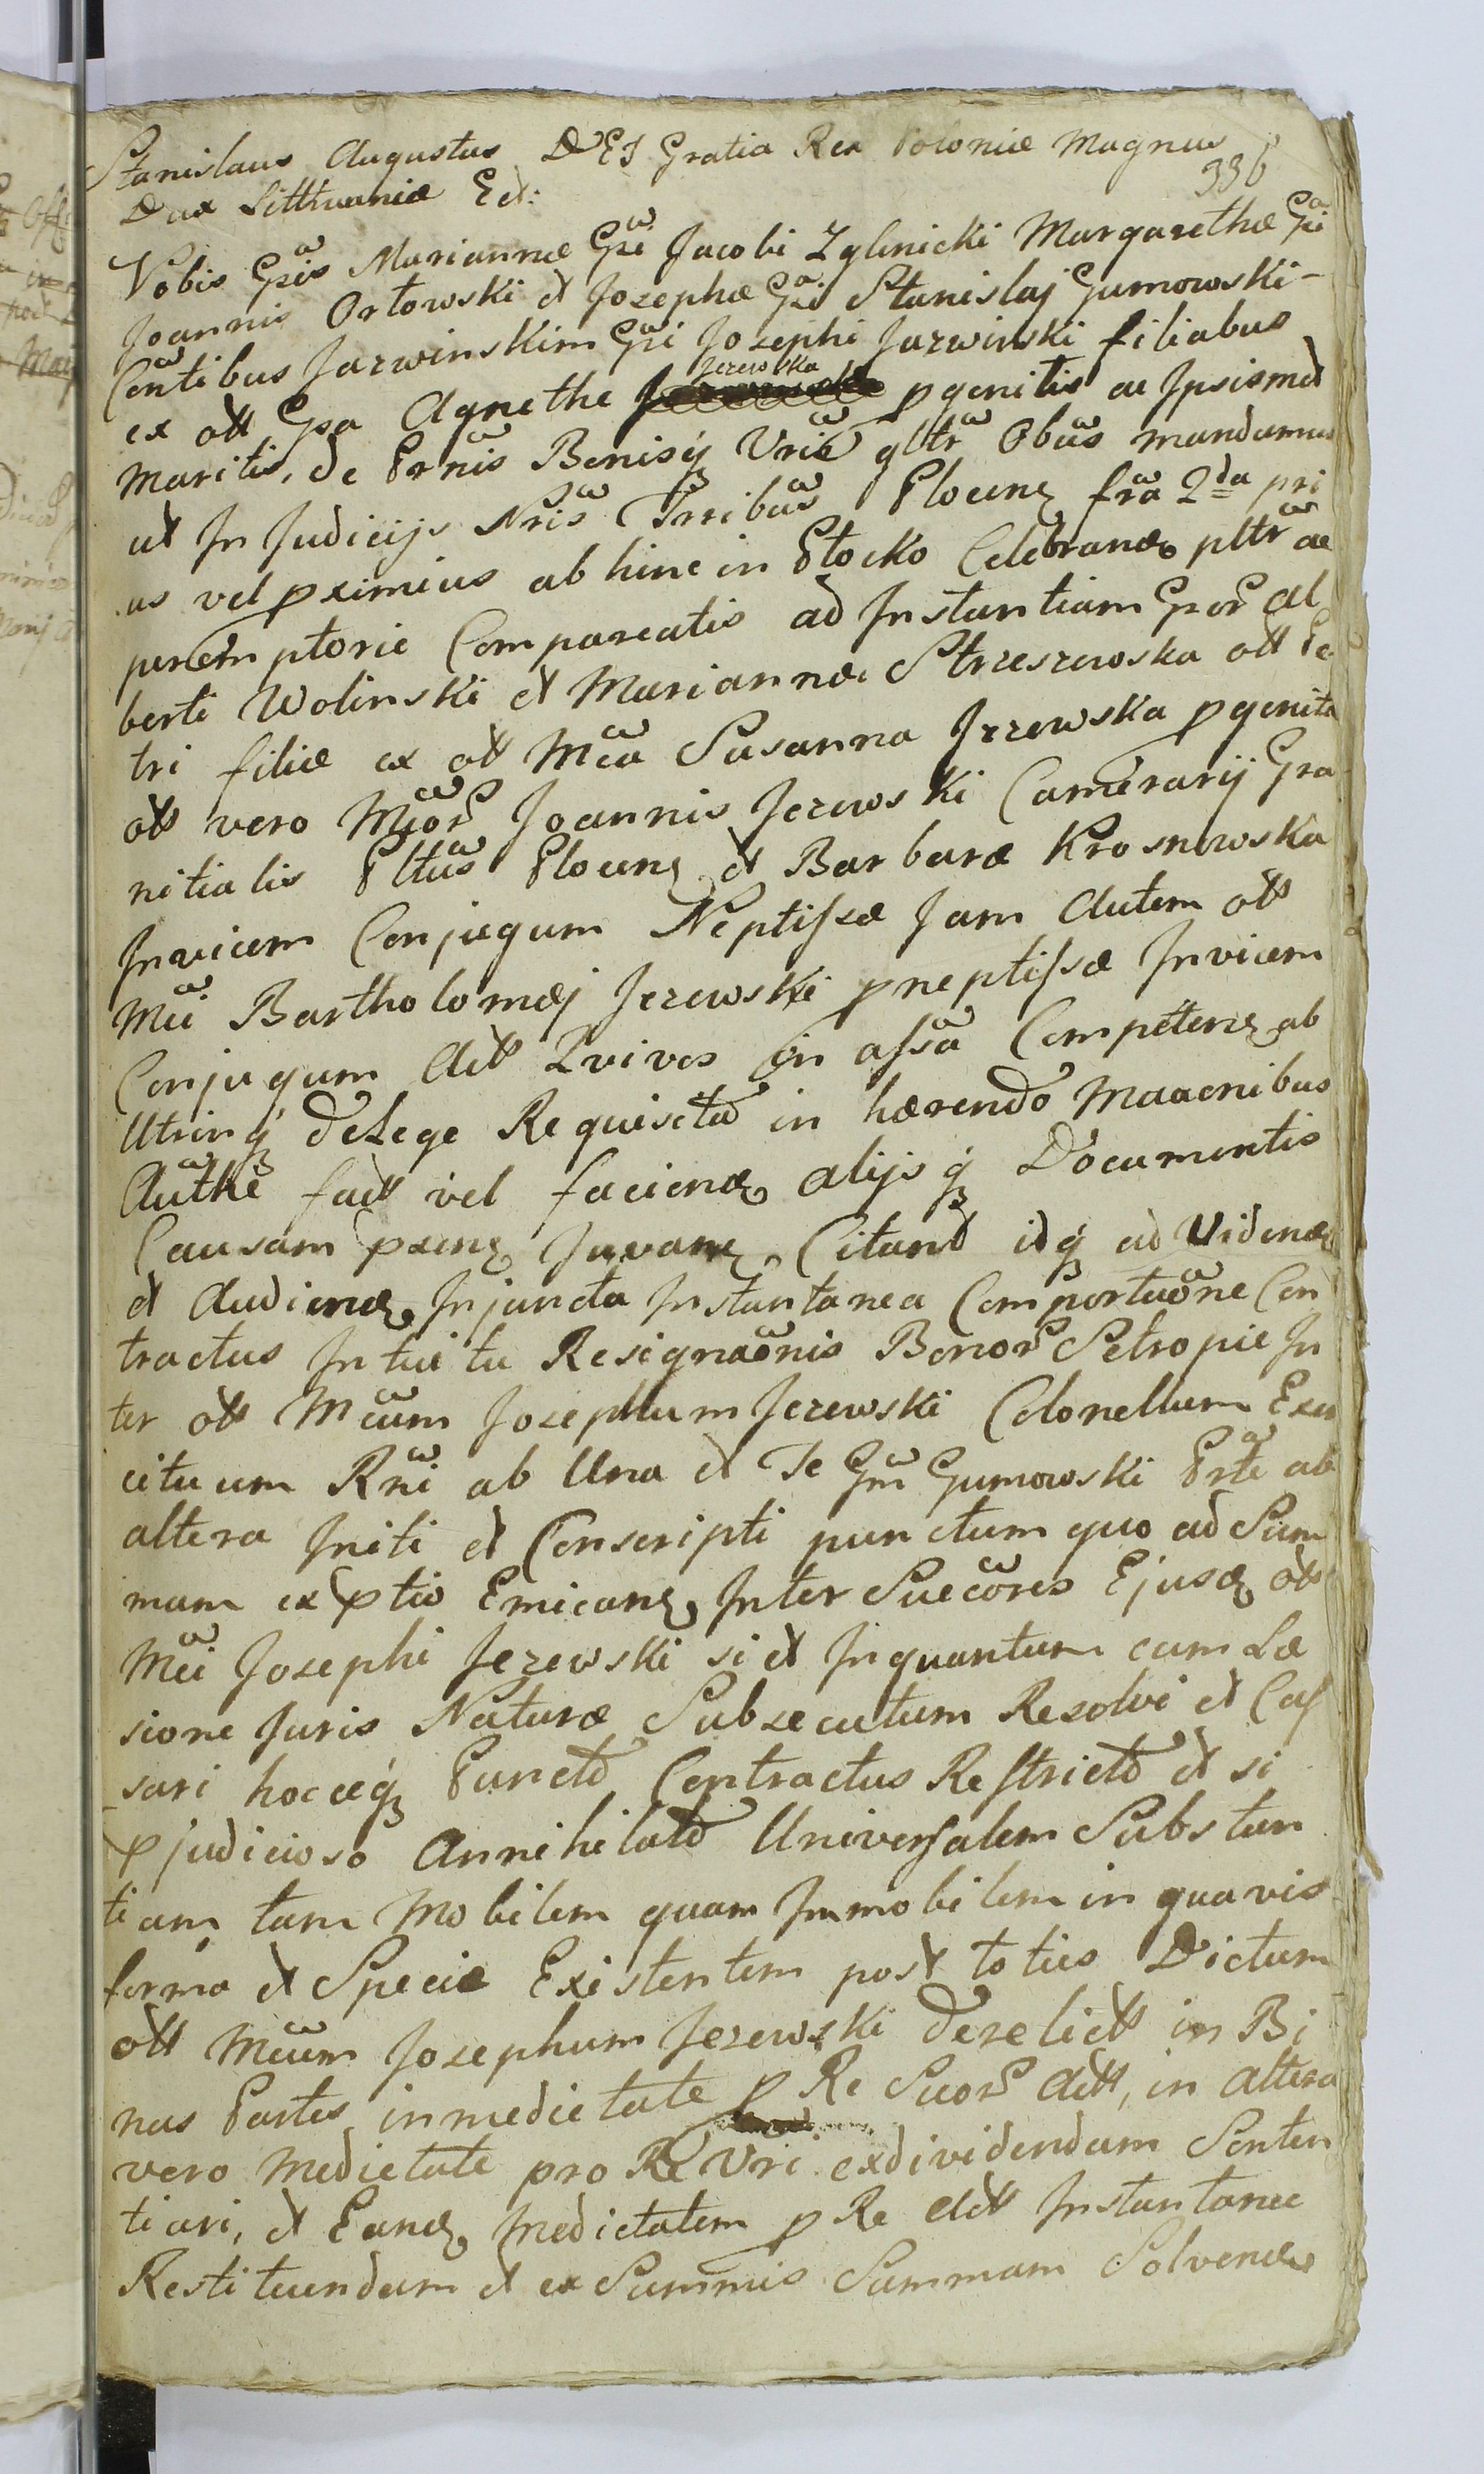 Stanislaus Augustus DEI Gratia Rex Poloniæ Magnus
336
Dux Litthuaniæ Ect:
Vobis Gsis Mariannæ Gsi Jacobi Zglinicki Margarethæ Gsi
Joannis Orłowski et Josephæ Gsi Stanislaj Gumowski
Contibus Jarwinskim Gsi Josephi Jarwinski filiabus
Jezewska
ex olt Gsa Agnethe pgenitis ac Ipsismet
Maritis, de Prnis Bonisq Vris gltr Obus mandamus
ut In Judicijs Nris Trribus Plocen fra 2da pri
us vel pximius ab hinc in Płocko Celebrand pltr ac
peremptorie Compareatis ad Instantiam Gsor Al
berti Wolinski et Mariannæ Strzeszewska olt Pe
tri filiæ ex olt Mca Susanna Jezewska pgenita
olt vero Mcor Joannis Jezewski Camerarij Gra
nitialis Pltus Plocen et Barbaræ Krosnowska
Invicem Conjugum Neptissæ Jam Autem olt
Mci Bartholomæj Jezewski pneptissæ Invicem
Conjugum Act Qvivos in assa Competen ab
Utrinq de Lege Requisita in hærendo Maaonibus
Authe fact vel faciend alijsq Documentis
Causam pxen Juvan Citand idq ad Videnda
et Audiend Injuncta Instantanea Comportaone Con
tractus Intuitu Resignaonis Bonor Setropie In
ter olt Mcum Josephum Jezewski Colonellum Exer
cituum Rni ab Una et Te Gm Gumowski Prte ab
altera Initi et Conscripti punctum quo ad Sum
mam ex ptio Emican Inter Succores Ejusd olt
Mci Josephi Jezewski si et Inquantum cum Læ
sione Juris Naturæ Subsecutum Resolvi et Cas
sari hocceq Puncto Contractus Restricto et si
pjudicioso Annihilato Universalem Substan
tiam tam Mobilem quam Immobilem in quavis
forma et Specie Existentem post toties Dictum
olt Mcum Josephum Jezewski derelict in Bi
nas Partes in medietate p Re Suor Act, in altera
vero Medietate pro Re Vri exdividendam Senten
tiari, et Eand Medietatem p Re Act Instantanee
Restituendam et ex Summis Summam Solvendas